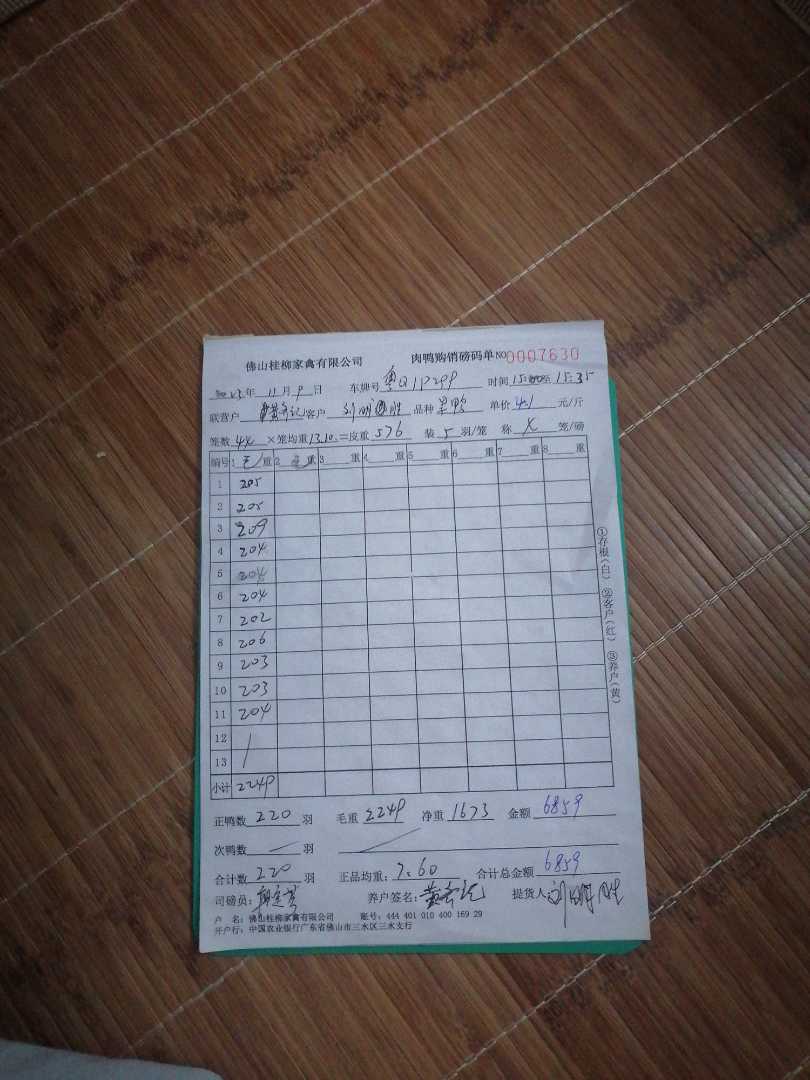 佛山桂柳家禽有限公司 肉鸭购销磅码单 NO 0007630
2023年 11月 9日 车牌号 粤Q1P299 时间 15:35
联营户 客户 刘明胜 品种 单价 4.1 元/斤
笼数 44 ×笼均重 13.10 =皮重 576 装 5 羽/笼 称 4 笼/磅
编号 1 毛重 2 重 3 重 4 重 5 重 6 重 7 重 8 重
1 205
2 205
3 209
4 204
5 204
6 204
7 202
8 206
9 203
10 203
11 204
12
13
小计 2249
正鸭数 220 羽 毛重 2249 净重 1673 金额 6859
次鸭数 羽
合计数 220 羽 正品均重: 7.60 合计总金额 6859
司磅员: 养户签名: 提货人 刘明胜
户 名: 佛山桂柳家禽有限公司 账号: 444 401 010 400 169 29
开户行: 中国农业银行广东省佛山市三水区三水支行
①存根(白) ②客户(红) ③养户(黄)